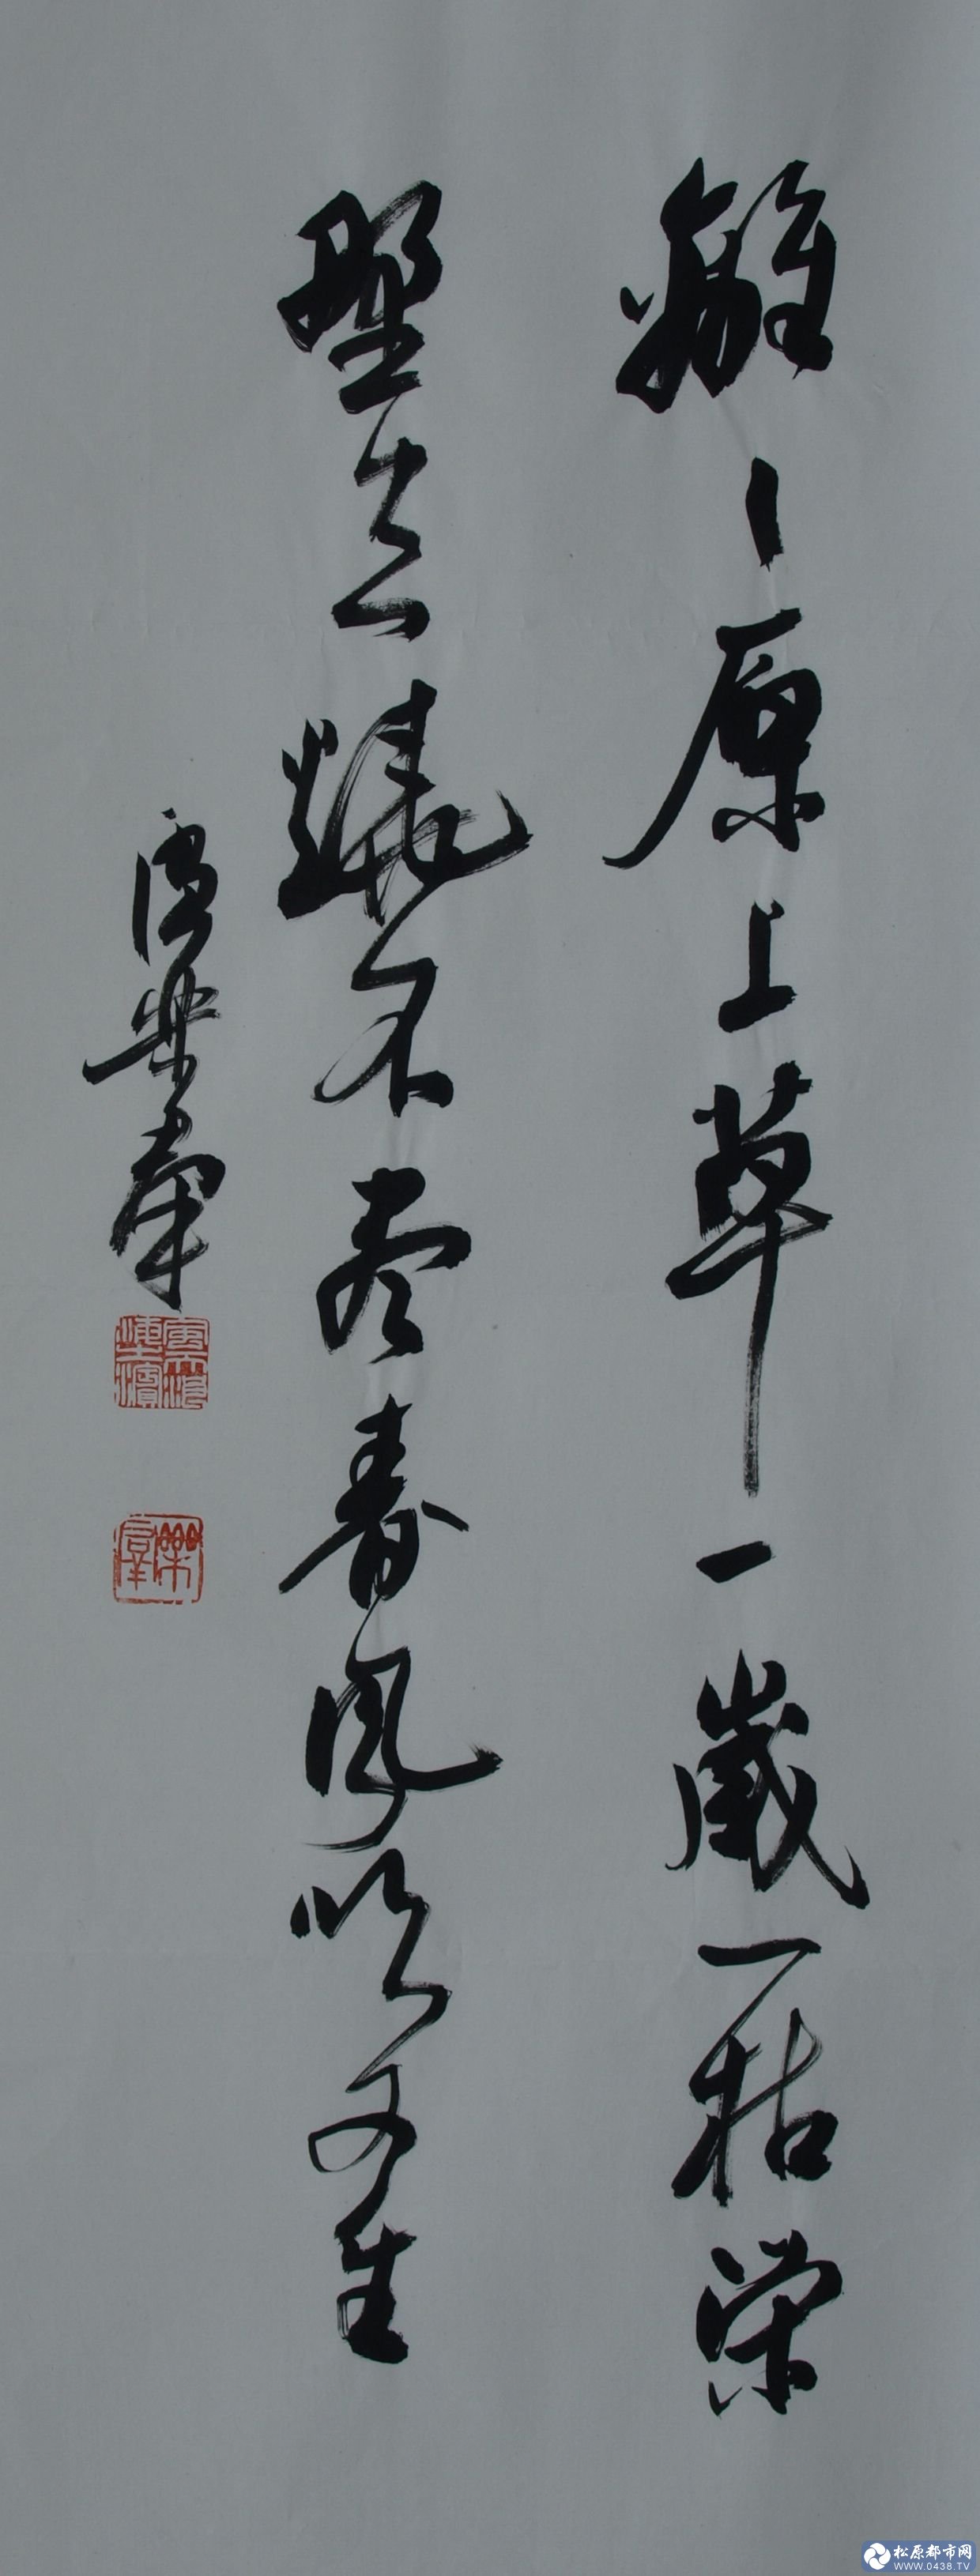 離〻原上草一歲一枯榮
野火燒不盡春風吹又生
樂群
松原都市网
WWW.0438.TV